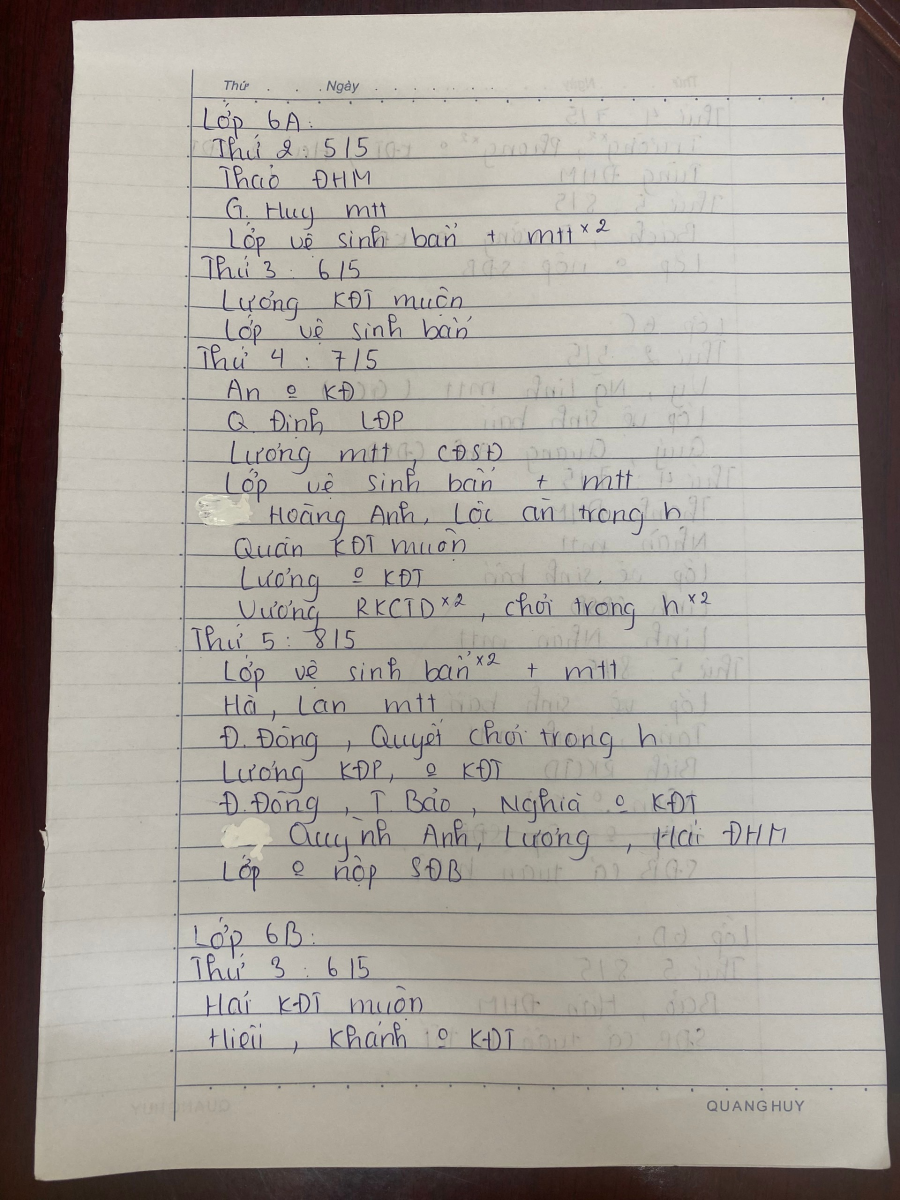 Thứ . . . . Ngày . . . . . . . . . .
Lớp 6A:
Thứ 2: 5/5
Thảo ĐHM
G. Huy mtt
Lớp vệ sinh bẩn + mtt ×2
Thứ 3: 6/5
Lương KĐT muộn
Lớp vệ sinh bẩn
Thứ 4: 7/5
An o KĐ
Q. Định LĐP
Lương mtt, CĐSĐ
Lớp vệ sinh bẩn + mtt
Hoàng Anh, Lộc ăn trong h
Quân KĐT muộn
Lương o KĐT
Vương RKCTD ×2, chơi trong h ×2
Thứ 5: 8/5
Lớp vệ sinh bẩn ×2 + mtt
Hà, Lan mtt
Đ. Đông, Quyết chơi trong h
Lương KĐP, o KĐT
Đ. Đông, T. Bảo, Nghĩa o KĐT
Quỳnh Anh, Lương, Hải ĐHM
Lớp o nộp SĐB
Lớp 6B:
Thứ 3: 6/5
Hải KĐT muộn
Hiếu, Khánh o KĐT
QUANG HUY